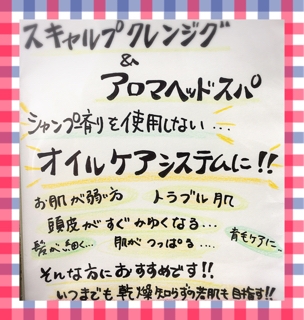 スキャルプクレンジング
&
アロマヘッドスパ
シャンプー剤を使用しない...
オイルケアシステムに!!
お肌が弱い方 トラブル肌
頭皮がすぐかゆくなる...
髪が細く... 肌がつっぱる.... 育毛ケアに..
そんな方におすすめです!!
いつまでも乾燥知らずの若肌も目指す!!